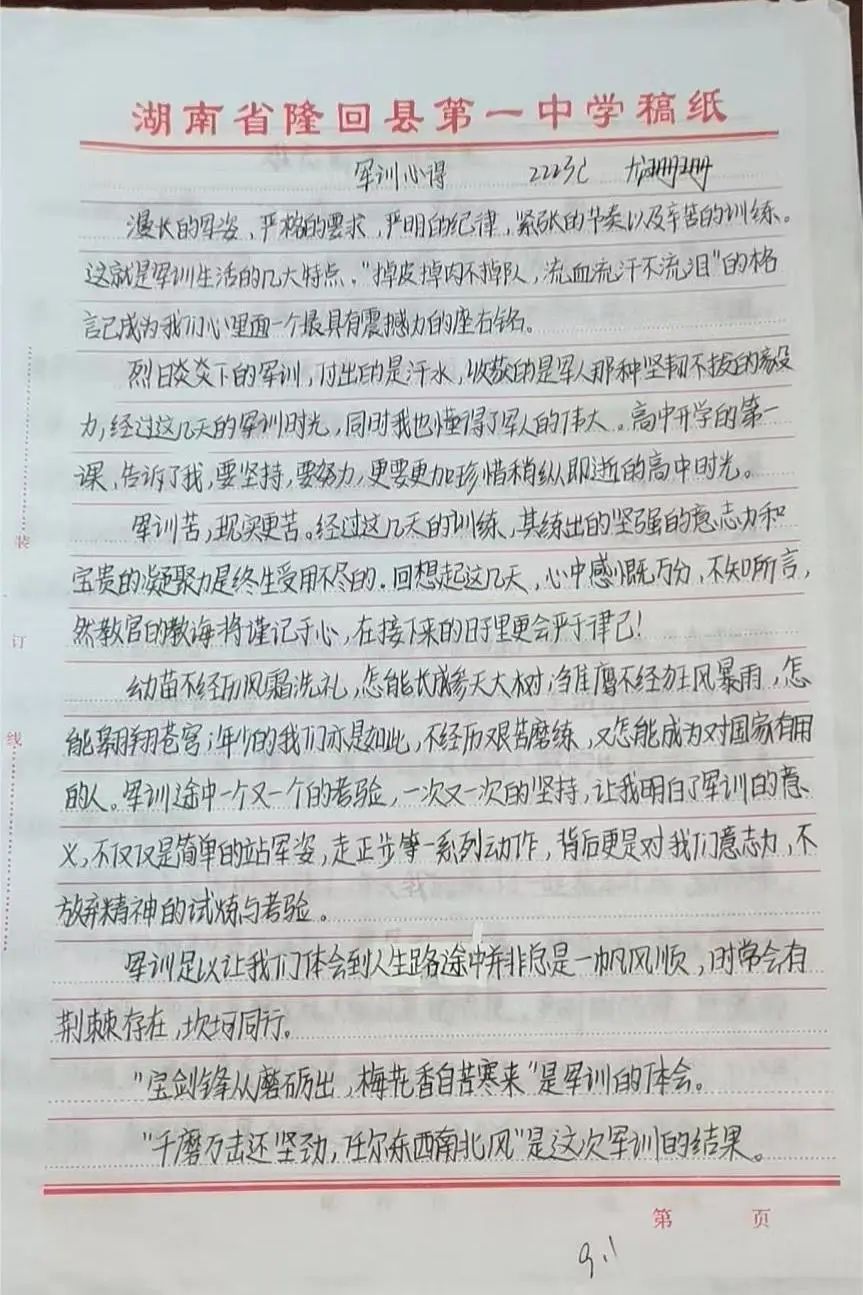 湖南省隆回县第一中学稿纸
军训心得 222班 龙珊珊
漫长的军姿、严格的要求，严明的纪律，紧张的节奏以及辛苦的训练。
这就是军训生活的几大特点，"掉皮掉肉不掉队，流血流汗不流泪"的格
言已成为我们心里面一个最具有震撼力的座右铭。
烈日炎炎下的军训，付出的是汗水，收获的是军人那种坚韧不拔的毅
力，经过这几天的军训时光，同时我也懂得了军人的伟大。高中开学的第一
课、告诉了我，要坚持，要努力，更要更加珍惜稍纵即逝的高中时光。
军训苦，现实更苦。经过这几天的训练、其练出的坚强的意志力和
宝贵的凝聚力是终生受用不尽的．回想起这几天，心中感慨万分，不知所言，
然教官的教诲将谨记于心，在接下来的日子里更会严于律己！
幼苗不经历风霜洗礼，怎能长成参天大树；雏鹰不经狂风暴雨，怎
能翱翔苍穹；年少的我们亦是如此，不经历艰苦磨练，又怎能成为对国家有用
的人。军训途中一个又一个的考验，一次又一次的坚持，让我明白了军训的意
义，不仅仅是简单的站军姿，走正步等一系列动作，背后更是对我们意志力，不
放弃精神的试炼与考验。
军训足以让我们体会到人生路途中并非总是一帆风顺，时常会有
荆棘存在，坎坷同行。
"宝剑锋从磨砺出，梅花香自苦寒来"是军训的体会。
"千磨万击还坚劲，任尔东西南北风"是这次军训的结果。
装
订
线
第 页
9.1